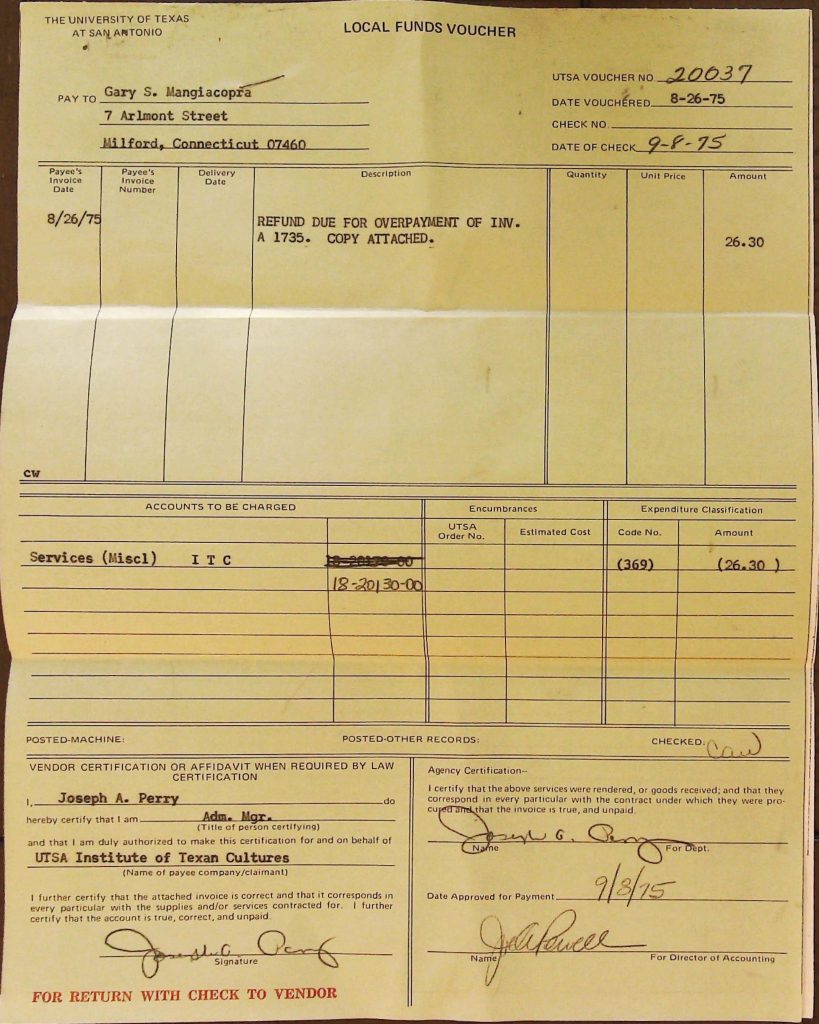 THE UNIVERSITY OF TEXAS
AT SAN ANTONIO
LOCAL FUNDS VOUCHER
UTSA VOUCHER NO 20037
PAY TO Gary S. Mangiacopra
DATE VOUCHERED 8-26-75
7 Arlmont Street
CHECK NO.
Milford, Connecticut 07460
DATE OF CHECK 9-8-75
Payee's Invoice Date
Payee's Invoice Number
Delivery Date
Description
Quantity
Unit Price
Amount
8/26/75
REFUND DUE FOR OVERPAYMENT OF INV.
A 1735. COPY ATTACHED.
26.30
CW
ACCOUNTS TO BE CHARGED
Encumbrances
Expenditure Classification
UTSA Order No.
Estimated Cost
Code No.
Amount
Services (Miscl) I T C 18-20170-00 (369) (26.30 )
18-20130-00
POSTED-MACHINE:
POSTED-OTHER RECORDS:
CHECKED: caw
VENDOR CERTIFICATION OR AFFIDAVIT WHEN REQUIRED BY LAW
CERTIFICATION
I, Joseph A. Perry do
hereby certify that I am Adm. Mgr.
(Title of person certifying)
and that I am duly authorized to make this certification for and on behalf of
UTSA Institute of Texan Cultures
(Name of payee company/claimant)
I further certify that the attached invoice is correct and that it corresponds in
every particular with the supplies and/or services contracted for. I further
certify that the account is true, correct, and unpaid.
Joseph A. Perry
Signature
FOR RETURN WITH CHECK TO VENDOR
Agency Certification--
I certify that the above services were rendered, or goods received; and that they
correspond in every particular with the contract under which they were pro-
cured and that the invoice is true, and unpaid.
Joseph A. Perry
Name For Dept.
Date Approved for Payment 9/8/75
Powell
Name For Director of Accounting